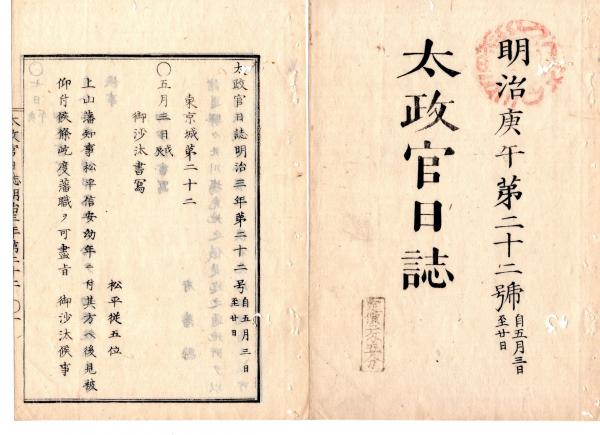 明治庚午第二十二號 自五月三日至廿日
太政官日誌
太政官日誌明治三年第二十二号 自五月三日至廿日
東京城第二十二
〇五月三日 戊戌
御沙汰書寫
松平従五位
上山藩知事松平信安幼年ニ付其方ヘ後見被
仰付候條政度藩職ヲ可盡旨 御沙汰候事
〇七日